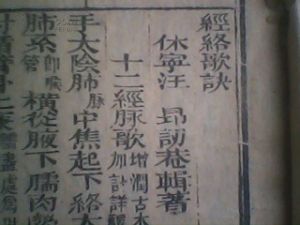 經絡歌訣
休寧汪　昂訒菴輯著
十二經脉歌增潤古本加註詳
手太陰肺脉中焦起下絡大
肺系管卽喉橫從腋下臑內縈